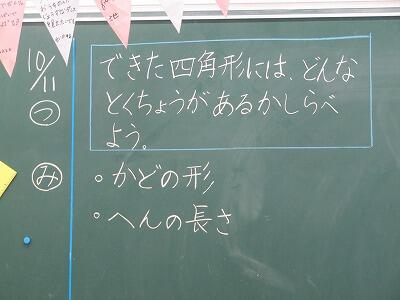 10/11
つ
できた四角形には、どんな
とくちょうがあるかしらべ
よう。
み
・かどの形
・へんの長さ